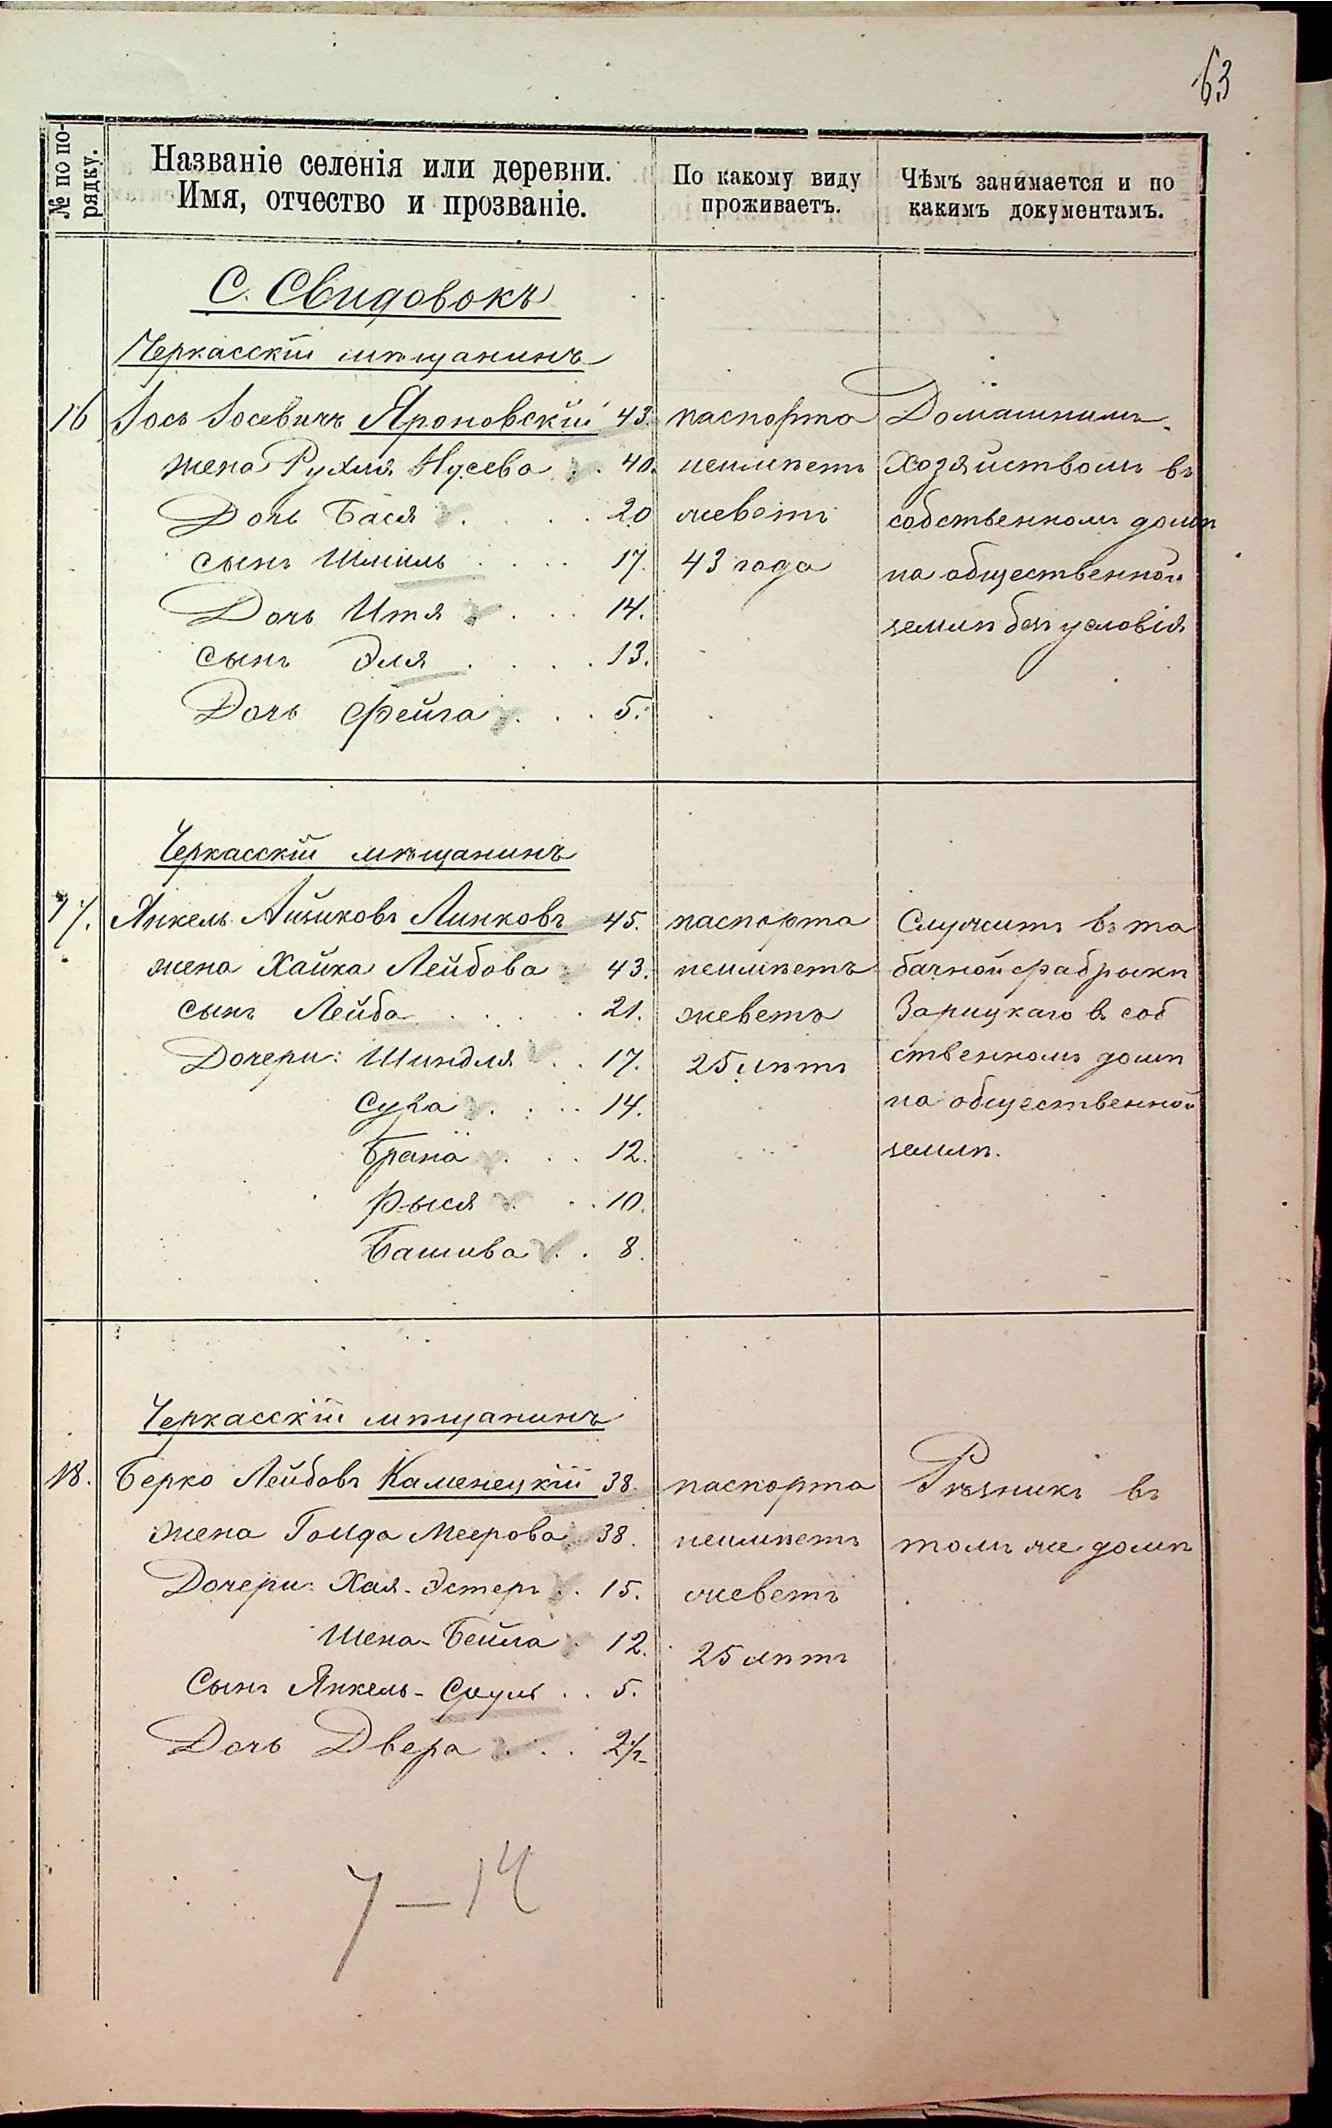 63
№ по по-
рядку.
Названіе селенія или деревни.
Имя, отчество и прозваніе.
По какому виду
проживаетъ.
Чѣмъ занимается и по
какимъ документамъ.
С. Свидовокъ
Черкасскій мѣщанинъ
16 Іось Іосевичъ Яроновскій 43. паспорта Домашнимъ
жена Рухля Нусева . . 40. неимѣетъ хозяйствомъ въ
Дочь Бася . . . . 20 живетъ собственномъ домѣ
сынъ Шміль . . . . 17. 43 года на общественной
Дочь Итя . . . 14. землѣ без условія
сынъ Эля . . . . 13.
Дочь Фейга . . . 5.
Черкасскій мѣщанинъ
17. Янкель Айзиковъ Линковъ 45. паспорта Служитъ в та
жена Хайка Лейбова . 43. неимѣетъ бачной фабрыки
сынъ Лейба . . . . 21. жеветъ Зарицкаго в соб
Дочери: Шиндля . . 17. 25 лѣтъ ственномъ домѣ
Сура . . . . 14. на общественной
Брана . . . 12. землѣ.
Рыся . . . 10.
Башива . . 8.
Черкасскій мѣщанинъ
18. Берко Лейбовъ Каменецкій 38. паспорта Рѣзникъ въ
жена Голда Меерова . 38. неимѣетъ томъ же домѣ
Дочери: Хая-Эстеръ . . 15. живетъ
Шена-Бейла . 12. 25 лѣтъ
Сынъ Янкель-Сруль . . 5.
Дочь Двера . . . 2½
7 — 14